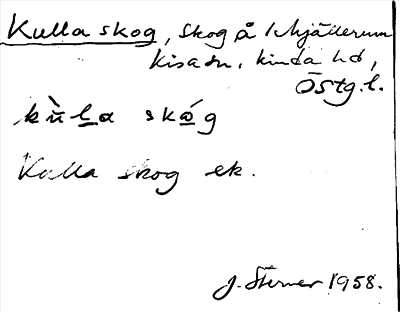 Kulla skog, skog å 1 hjällerum
Kisa sn, kinda hd,
Östg.l.
kù̀la skǻg
Kulla skog ek.
J. Sterner 1958.